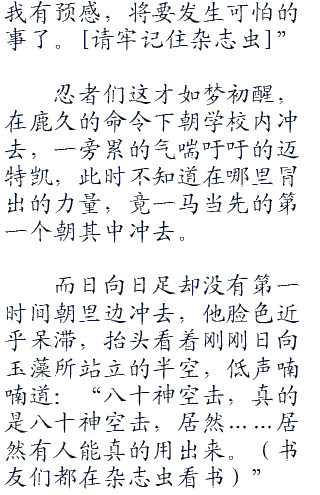 我有预感，将要发生可怕的
事了。[请牢记住杂志虫]”
忍者们这才如梦初醒，
在鹿久的命令下朝学校内冲
去，一旁累的气喘吁吁的迈
特凯，此时不知道在哪里冒
出的力量，竟一马当先的第
一个朝其中冲去。
而日向日足却没有第一
时间朝里边冲去，他脸色近
乎呆滞，抬头看着刚刚日向
玉藻所站立的半空，低声喃
喃道：“八十神空击，真的
是八十神空击，居然……居
然有人能真的用出来。（书
友们都在杂志虫看书）”